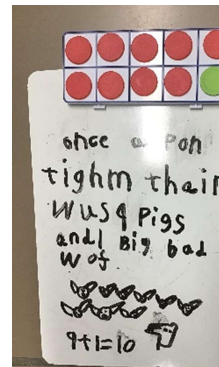 once a pon
tighm thair
wus 9 pigs
and 1 Big bad
wof
9+1=10